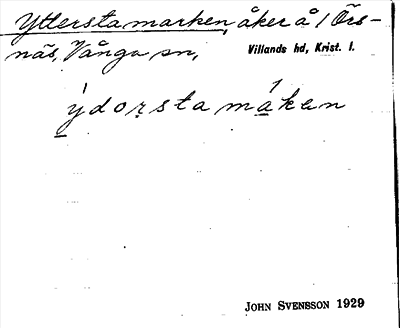 Ytterstamarken, åker å 1 Örs-
näs, Vånga sn, Villands hd, Krist. l.
ýdoṛsta mákan
JOHN SVENSSON 1929